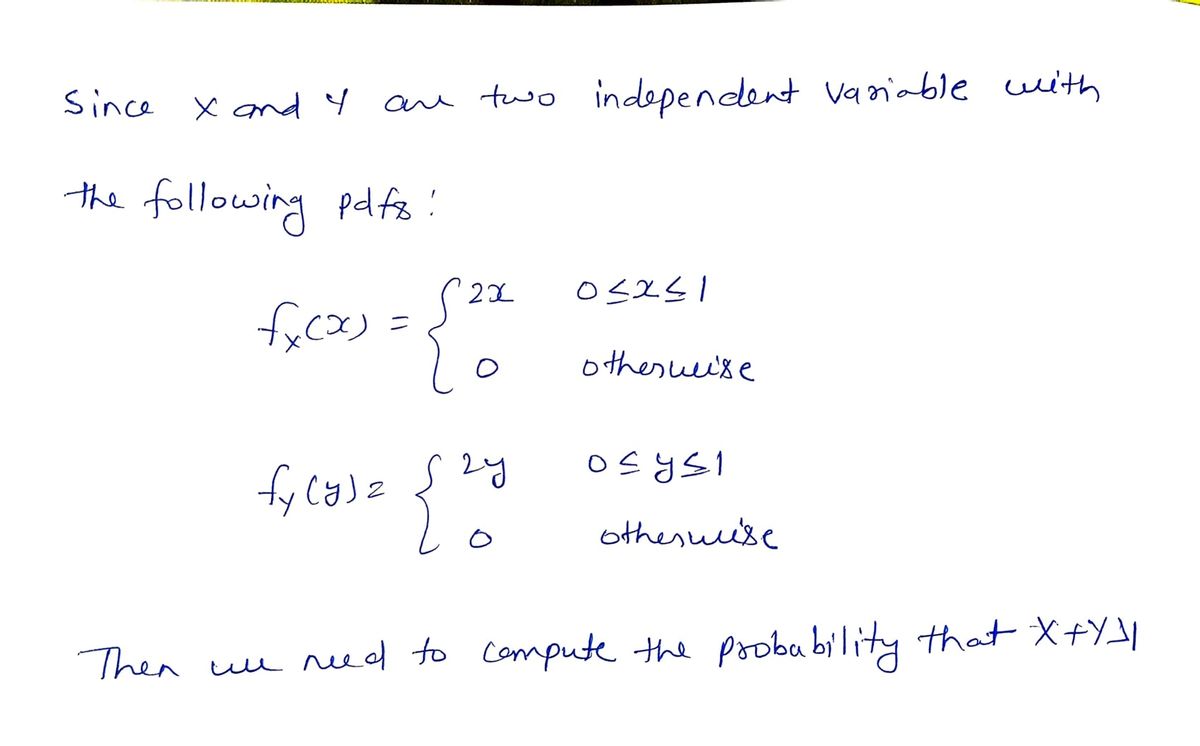 Since X and Y are two independent variable with
the following pdfs:
fx(x) = { 2x 0≤x≤1
0 otherwise
fy(y) = { 2y 0≤y≤1
0 otherwise
Then we need to compute the probability that X+Y